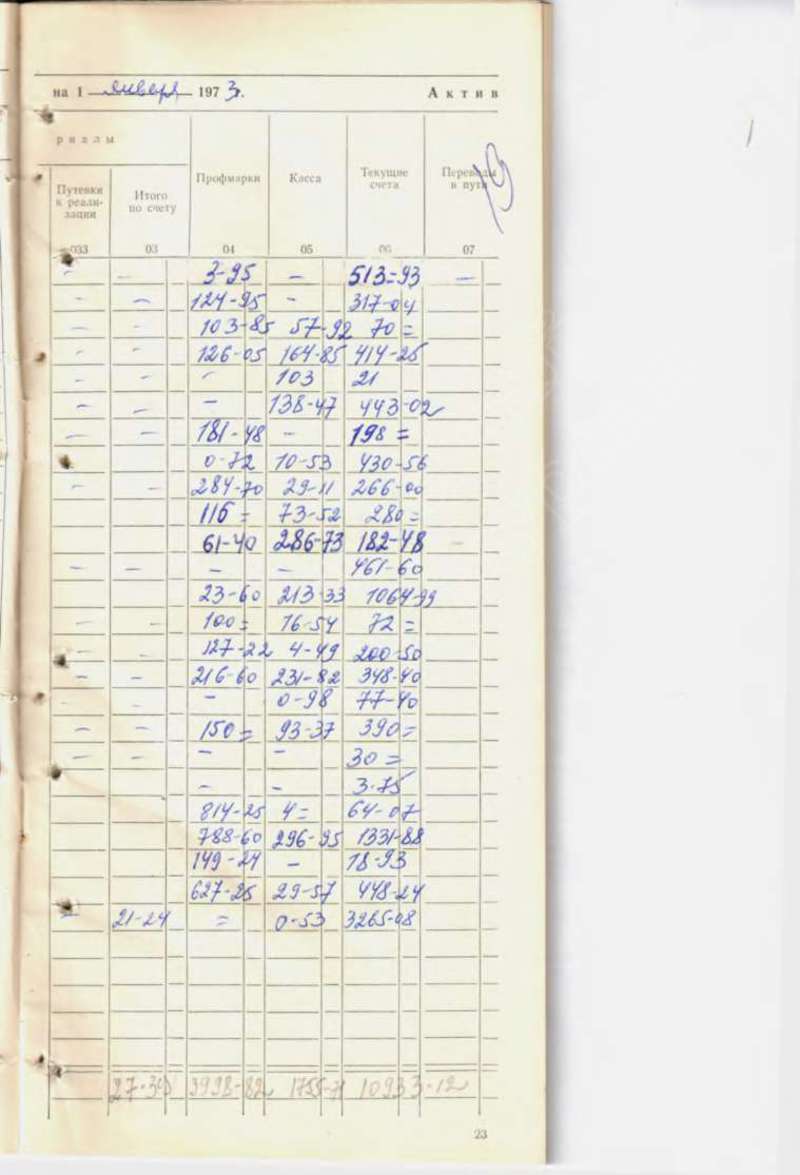 на 1 января 1973 г. Актив
риалы
19
Путевки к реали-зации Итого по счету Профмарки Касса Текущие счета Переводы в пути
033 03 04 05 06 07
- - 3-95 - 513=93 -
- - 124-95 - 317-04
- - 103-85 57-92 70=
- - 126-05 164-85 414-25
- - - 103 21
- - - 138-47 443-02
- - 181-48 - 198=
0-72 10-53 430-56
- - 284-70 29-11 266-00
116= 73-52 280=
61-40 286-73 182-48 -
- - - - 461-60
23-60 213-33 1064-99
- - 100= 16-54 72=
- - 127-22 4-49 200-50
- - 216-60 231-82 348-40
- - - 0-98 77-40
- - 150= 93-37 390=
- - - - 30=
- - 3-75
814-25 4= 64-07
788-60 296-95 1331-88
149-24 - 18-93
627-25 29-57 448-24
- 21-24 = 0-53 3265-08
3998-82 1755-71 10933-12
23